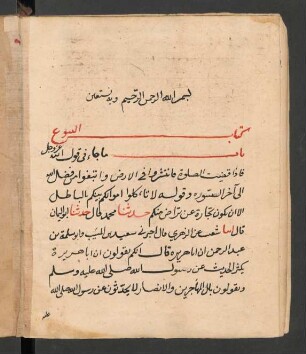 بسم الله الرحمن الرحيم وبه نستعين
كتاب البيوع
باب ما جاء فى قول الله عز وجل
فاذا قضيت الصلوة فانتشروا فى الارض وابتغوا من فضل الله
الى آخر السورة وقوله لا تاكلوا اموالكم بينكم بالباطل
الا ان تكون تجارة عن تراض منكم حدثنا محمد قال حدثنا ابو اليمان
قال انا شعيب عن الزهري قال اخبرني سعيد بن المسيب وابو سلمة بن
عبد الرحمن ان ابا هريرة قال انكم تقولون ان ابا هريرة
يكثر الحديث عن رسول الله صلى الله عليه وسلم
وتقولون ما بال المهاجرين والانصار لا يحدثون عن رسول الله صلى الله